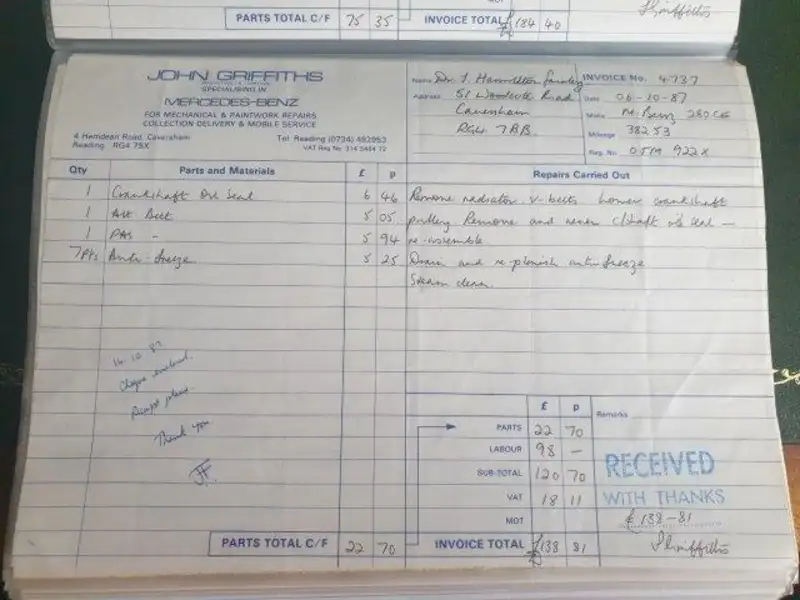 PARTS TOTAL C/F 75 35 INVOICE TOTAL £184 40
JOHN GRIFFITHS
SPECIALISING IN
MERCEDES-BENZ
FOR MECHANICAL & PAINTWORK REPAIRS
COLLECTION DELIVERY & MOBILE SERVICE
4 Hemdean Road, Caversham
Reading RG4 7SX
Tel Reading (0734) 482953
VAT Reg No 314 5464 72
Name Dr. J. Hamilton
Address 51 Woodcote Road
Caversham
RG4 7BB.
INVOICE No. 4737
Date 06-10-87
Make M. Benz 280CE
Mileage 38253
Reg. No. 922X
Qty Parts and Materials £ p Repairs Carried Out
1 Crankshaft Oil Seal 6 46 Remove radiator v-belts crankshaft
1 Alt Belt 5 05 pulley Remove and renew c/shaft oil seal —
1 PAS - 5 94 re-assemble
7Pts Anti-freeze 5 25 Drain and re-plenish anti freeze
Steam clean.
14.10.87
Cheque enclosed.
Receipt please.
Thank you
JF.
£ p Remarks
PARTS 22 70
LABOUR 98 —
SUB-TOTAL 120 70
VAT 18 11
MOT
RECEIVED
WITH THANKS
£138-81
J Griffiths
PARTS TOTAL C/F 22 70 INVOICE TOTAL £138 81